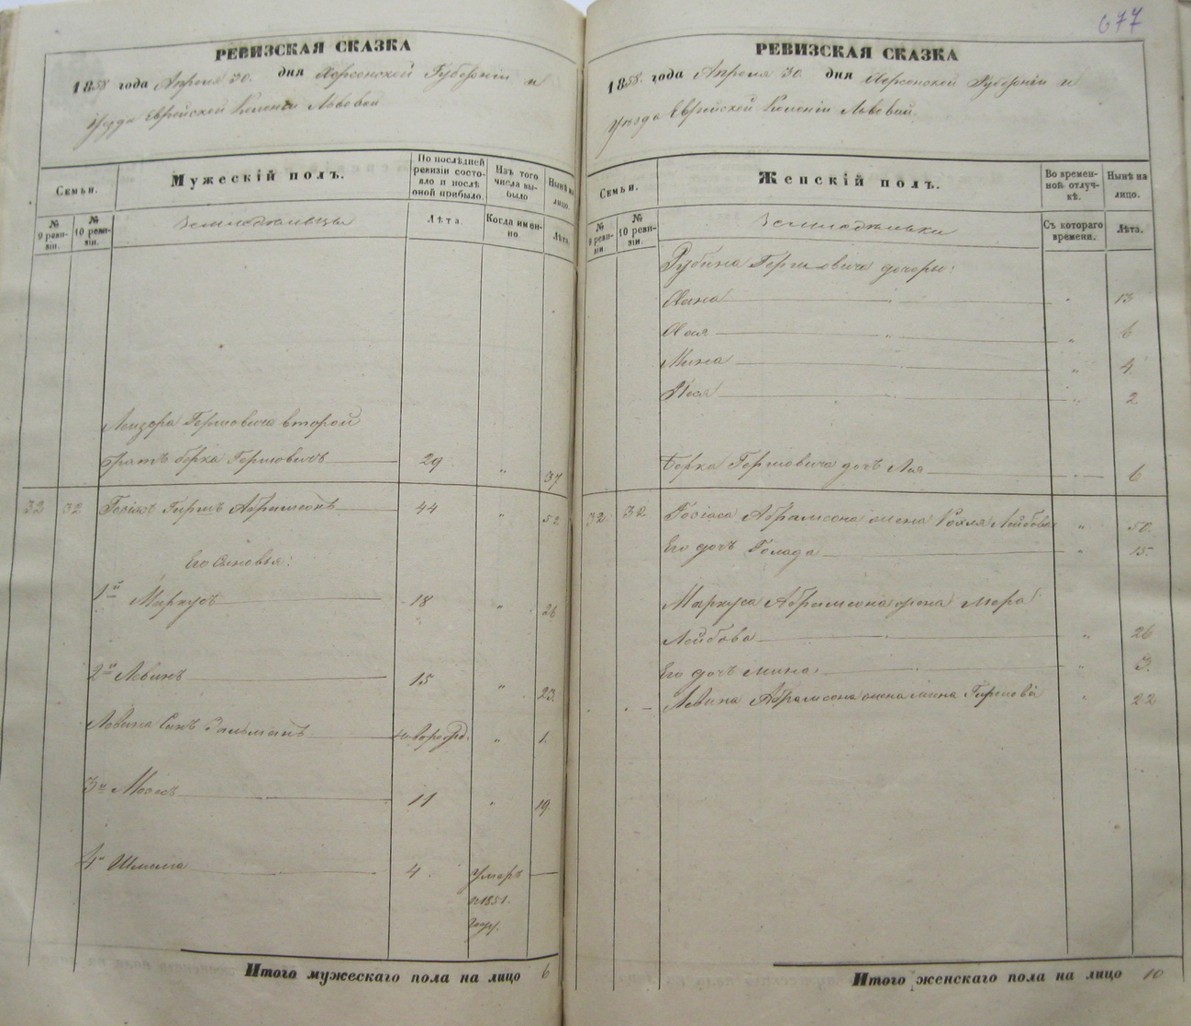 677
РЕВИЗСКАЯ СКАЗКА
1858 года Апреля 30. дня Херсонской Губерніи и
уезда Еврейской Колоніи Львовой
Семьи.
Мужескій полъ.
По послѣдней ревизіи состояло и послѣ оной прибыло.
Изъ того числа выбыло
Нынѣ на лицо.
№ 9 ревизіи.
№ 10 ревизіи.
Земледельцы
Лѣта.
Когда именно.
Лѣта.
Гершовича второй
братъ Берка Гершовичъ 29 " 37
32 32 Гиршъ Абрамсонъ 44 " 52
Его Сыновья:
1й Маркусъ 18 " 26
2й Левинъ 15 " 23.
Левина Сынъ Зальманъ новорожд. " 1.
3й 11 " 19.
4й Шлиома 4. умеръ
в 1851.
году.
Итого мужескаго пола на лицо 6
РЕВИЗСКАЯ СКАЗКА
1858. года Апреля 30. дня Херсонской Губерніи и
уезда Еврейской Колоніи Львовой.
Семьи.
Женскій полъ.
Во временной отлучкѣ.
Нынѣ на лицо.
№ 9 ревизіи.
№ 10 ревизіи.
Земледельки
Съ котораго времени.
Лѣта.
Рубина Гершовича дочери:
Хана " 13
Хая " 6
Мина " 4.
" 2
Берка Гершовича дочь Лея 6
32. 32 Абрамсона жена Рохля Лейбова " 50.
Его дочь Голада " 15.
Маркуса Абрамсона жена Мера
Лейбова " 26
Его дочь Мина " 3.
Левина Абрамсона жена Мина Гиршова " 22
Итого женскаго пола на лицо 10